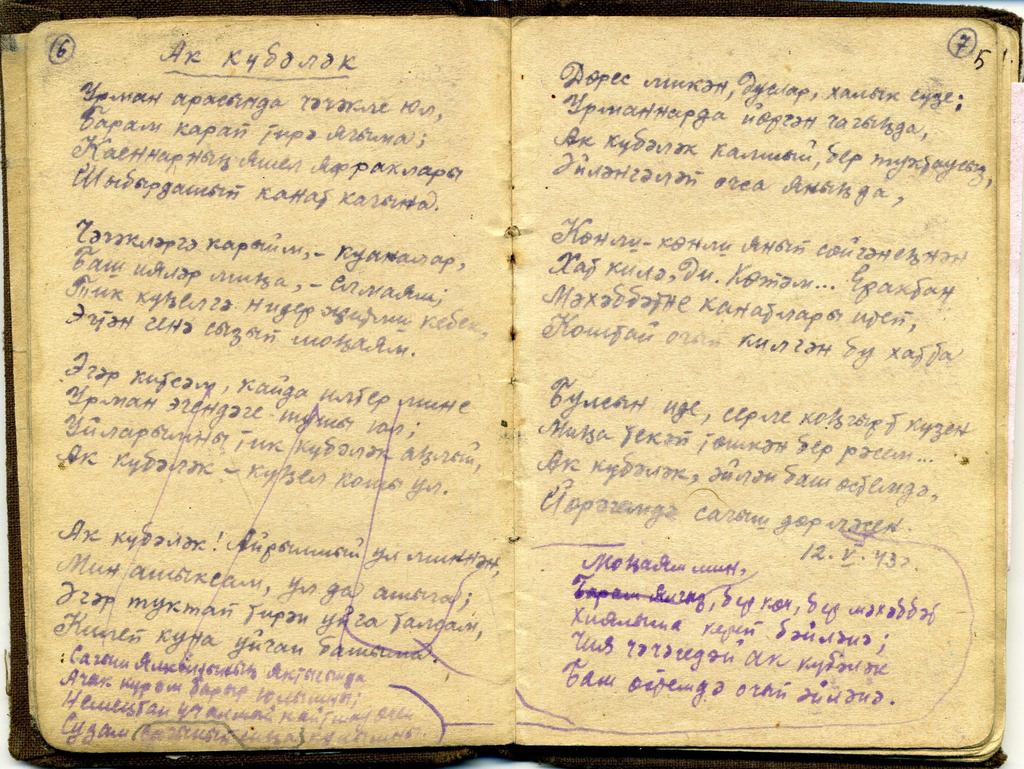 6
Ак күбәләк
Урман арасында чәчәкле юл,
Барам карап тирә ягыма;
Каеннарның яшел яфраклары
Шыбырдашып канат кагына.
Чәчәкләргә карыйм, - куаналар,
Баш ияләр миңа, - елмаям;
Тик күңелгә нидер җитми кебек,
Эчтән генә сызып моңаям.
Әгәр китсәм, кайда илтер мине
Урман эчендәге юл;
Уйларымны тик күбәләк аңлый,
Ак күбәләк - күңел кошы ул.
Ак күбәләк! Айрылмый ул миннән,
Мин ашыксам, ул да ашыга;
Әгәр туктап тирән уйга талсам,
Килеп куна уйчан башыма.
Сагыш ялкынының яктысында
Ачак күрәм барыр юлымны;
7
5
Дөрес микән, дуслар, халык сүзе:
Урманнарда йөргән чагыңда,
Ак күбәләк калмый, бер туктаусыз,
Әйләнгәләп очса яныңда,
Көнли-көнли янып сөйгәнеңнән
Хат килә, ди. Көтәм... Ерактан
Мәхәббәтне канатлары итеп,
Коштай очып килгән бу хатта
Булсын иде, серле коңгырт күзең
Миңа текәп төшкән бер рәсем...
Ак күбәләк, әйлән баш өстемдә,
Йөрәгемдә сагыш дөрләсен.
12. V. 43г.
Моңаям мин,
бер көч, бер мәхәббәт
Хыялыма кереп бәйләнә;
Чия чәчәгедәй ак күбәләк
Баш өстемдә очып әйләнә.